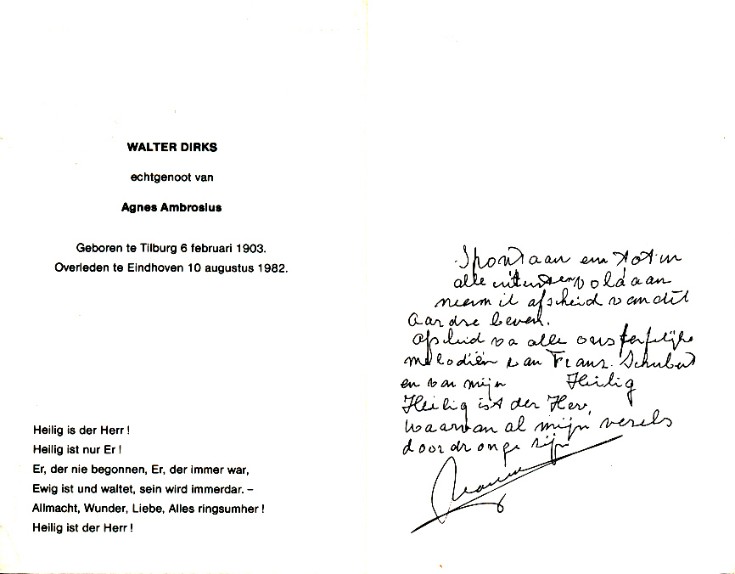 WALTER DIRKS
echtgenoot van
Agnes Ambrosius
Geboren te Tilburg 6 februari 1903.
Overleden te Eindhoven 10 augustus 1982.
Heilig is der Herr!
Heilig ist nur Er!
Er, der nie begonnen, Er, der immer war,
Ewig ist und waltet, sein wird immerdar. –
Allmacht, Wunder, Liebe, Alles ringsumher!
Heilig ist der Herr!
Spontaan en tot in
alle voldaan
neem ik afscheid van dit
Aardse leven.
Afscheid va alle onsterfelijke
melodiën van Franz Schubert
en van mijn Heilig
Heilig ist der Herr,
waarvan al mijn vezels
doordrongen zijn